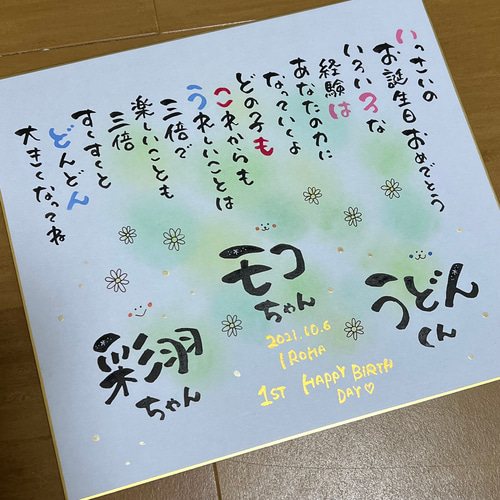 いっさいの
お誕生日おめでとう
いろいろな
経験は
あなたの力に
なっていくよ
どの子も
これからも
うれしいことは
三倍で
楽しいことも
三倍
すくすくと
どんどん
大きくなってね
うどん
くん
モコ
ちゃん
彩羽
ちゃん
2021.10.6
IROHA
1ST HAPPY BIRTH
DAY♡